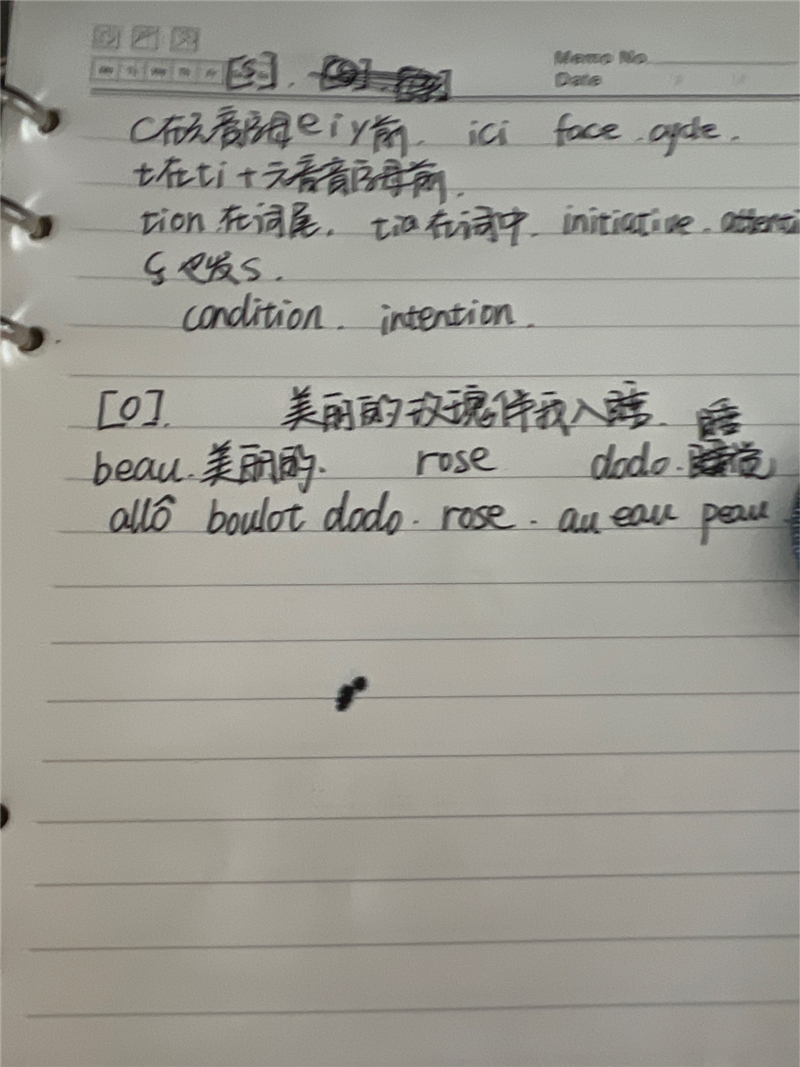 Memo No.
Date
[s].
C在元音字母e i y前. ici face. cycle.
t在ti+元音字母前.
tion在词尾. tia在词中. initiative. attenti
ç也发s.
condition. intention.
[o]. 美丽的玫瑰伴我入睡. 睡
beau. 美丽的. rose dodo. 睡觉
allô boulot dodo. rose. au eau peau